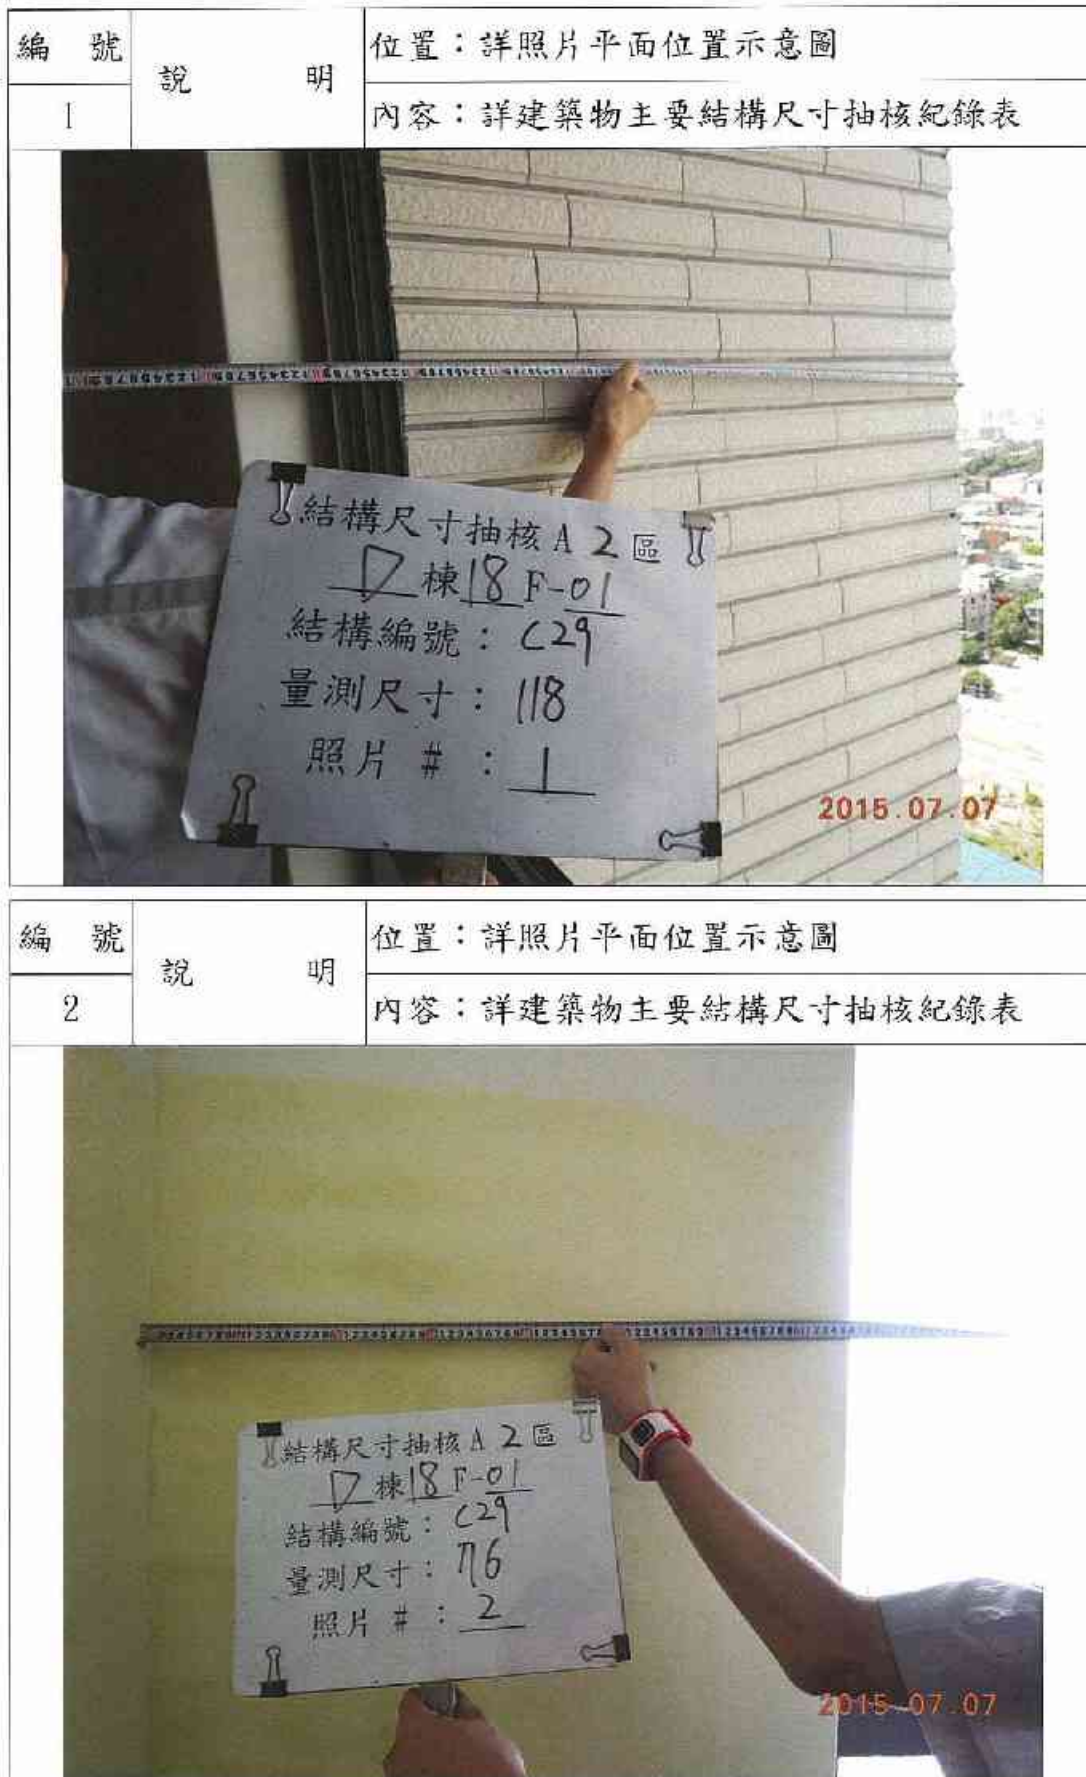 編 號
說 明
位置：詳照片平面位置示意圖
1
內容：詳建築物主要結構尺寸抽核紀錄表
結構尺寸抽核A 2 區
D 棟 18 F-01
結構編號：C29
量測尺寸：118
照片 # ：1
2015.07.07
編 號
說 明
位置：詳照片平面位置示意圖
2
內容：詳建築物主要結構尺寸抽核紀錄表
結構尺寸抽核A 2 區
D 棟 18 F-01
結構編號：C29
量測尺寸：
照片 # ：2
2015.07.07